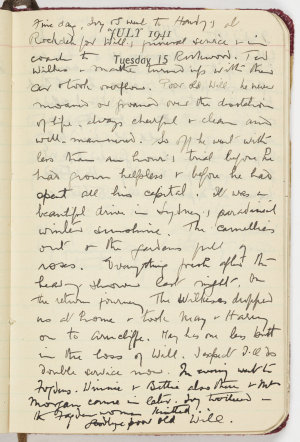 Fine day. Ivy & I went to Hardy's at
JULY 1941
Rockdale for Will's funeral service & in
Tuesday 15
coach to Rookwood. Ted
Wilkes & turned up with their
car & took overflow. Poor old Will, he never
moaned or groaned over the desolation
of life. Always cheerful & clean and
well-mannered. So off he went with
less than an hour's trial before he
had grown helpless & before he had
spent all his capital. It was a
beautiful drive in Sydney's
winter sunshine. The camellias
out & the gardens full of
roses. Everything fresh after the
heavy shower last night. On
the return journey the Wilkeses dropped
us at home & took May & Harry
on to Arncliffe. May has one less
in the loss of Will. I expect I'll do
double service now. In evening went to
Winnie & also there & Mrs
Morgan came in later. Ivy
women knitted.
Goodbye poor old Will.